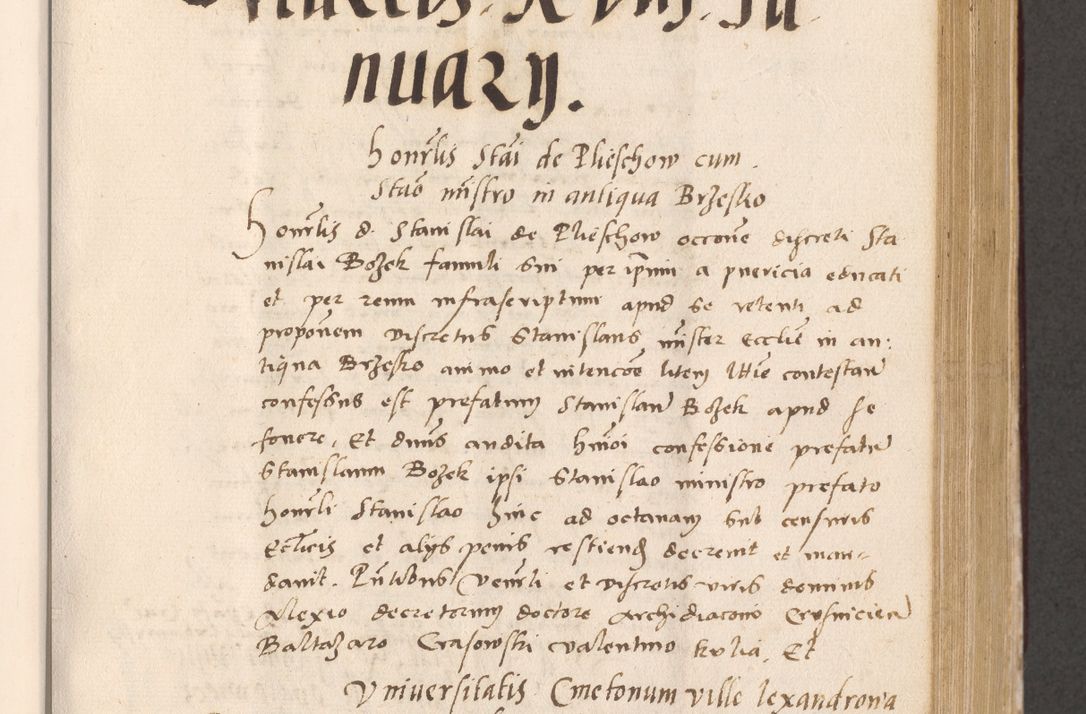 nuarÿ.
honrlis Stai de Plieschow cum
Stao mistro in antiqua Brzesko
Honrlis d. Stanislai de Plieschow occone discreti Sta
nislai Bozek famuli sui per ipmm a puericia educati
et per reum infrascriptum apud se retenti ad
proponem discretus Stanislaus mister Ecclie in an:
tiqua Brzesko animo et intencoe litem contestan
confessus est prefatum Stanislaum Bozek apud se
fouere. Et dnus audita hmoi confessione prefatum
Stanislaum Bozek ipsi Stanislao ministro prefato
honrli Stanislao hinc ad octauam sub censuris
Eccticis et alijs penis restiend decreuit et man-
dauit. Pntibus Venrli et discretis viris dominis
Alexio decretorum doctore Archidiacono
Baltazaro Crasowski valentino kulia, Et
Vniuersitatis Cmetonum ville lexandrowa